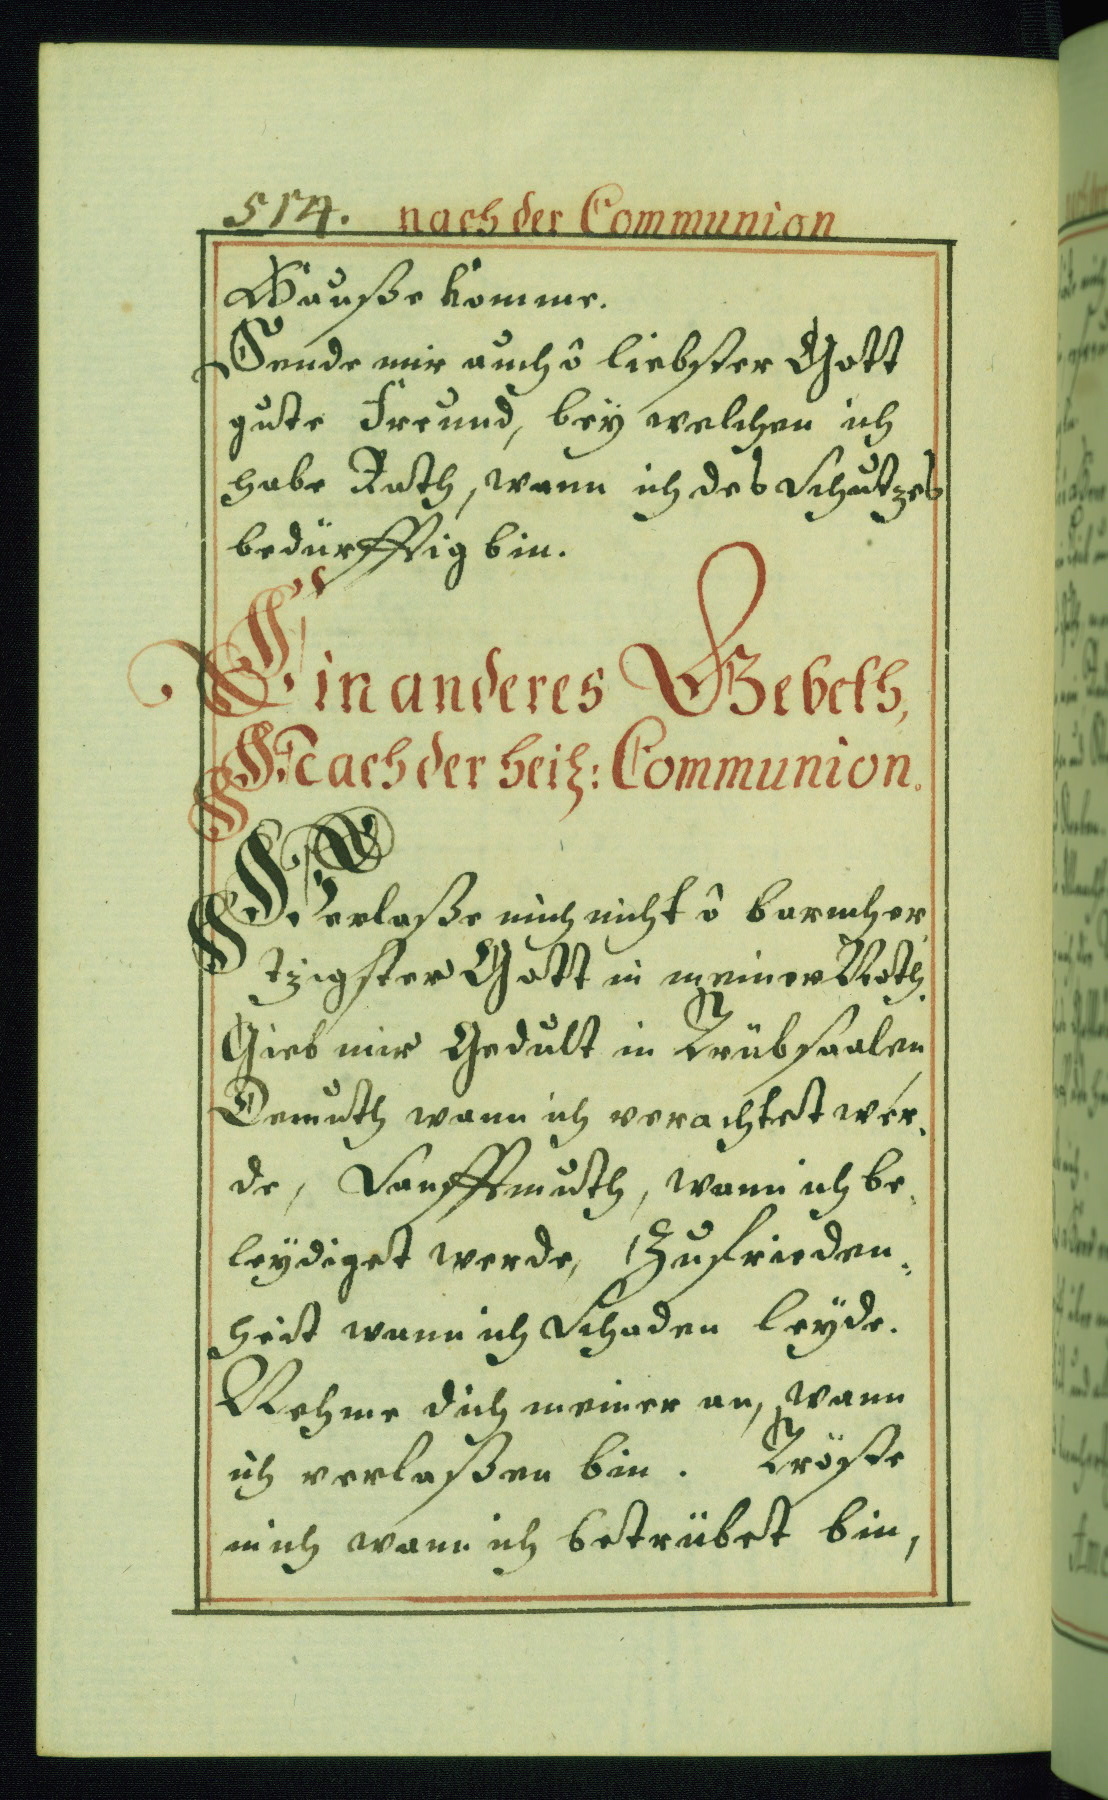 514. nach der Communion
Hauße komme.
Sende mir auch ô liebster Gott
gute Freund, bey welchen ich
habe Rath, wann ich des Schutzes
bedürfftig bin.
Ein anderes Gebeth,
Nach der heil: Communion.
Verlaße mich nicht ô barmher,
tzigster Gott in meiner Noth.
Gieb mir Gedult in Trübsaalen
Demuth wann ich verachtet wer,
de, Sanfftmuth, wann ich be,
leydiget werde, Zufrieden,
heit wann ich Schaden leyde.
Nehme dich meiner an, wann
ich verlaßen bin. Tröste
mich wann ich betrübet bin,